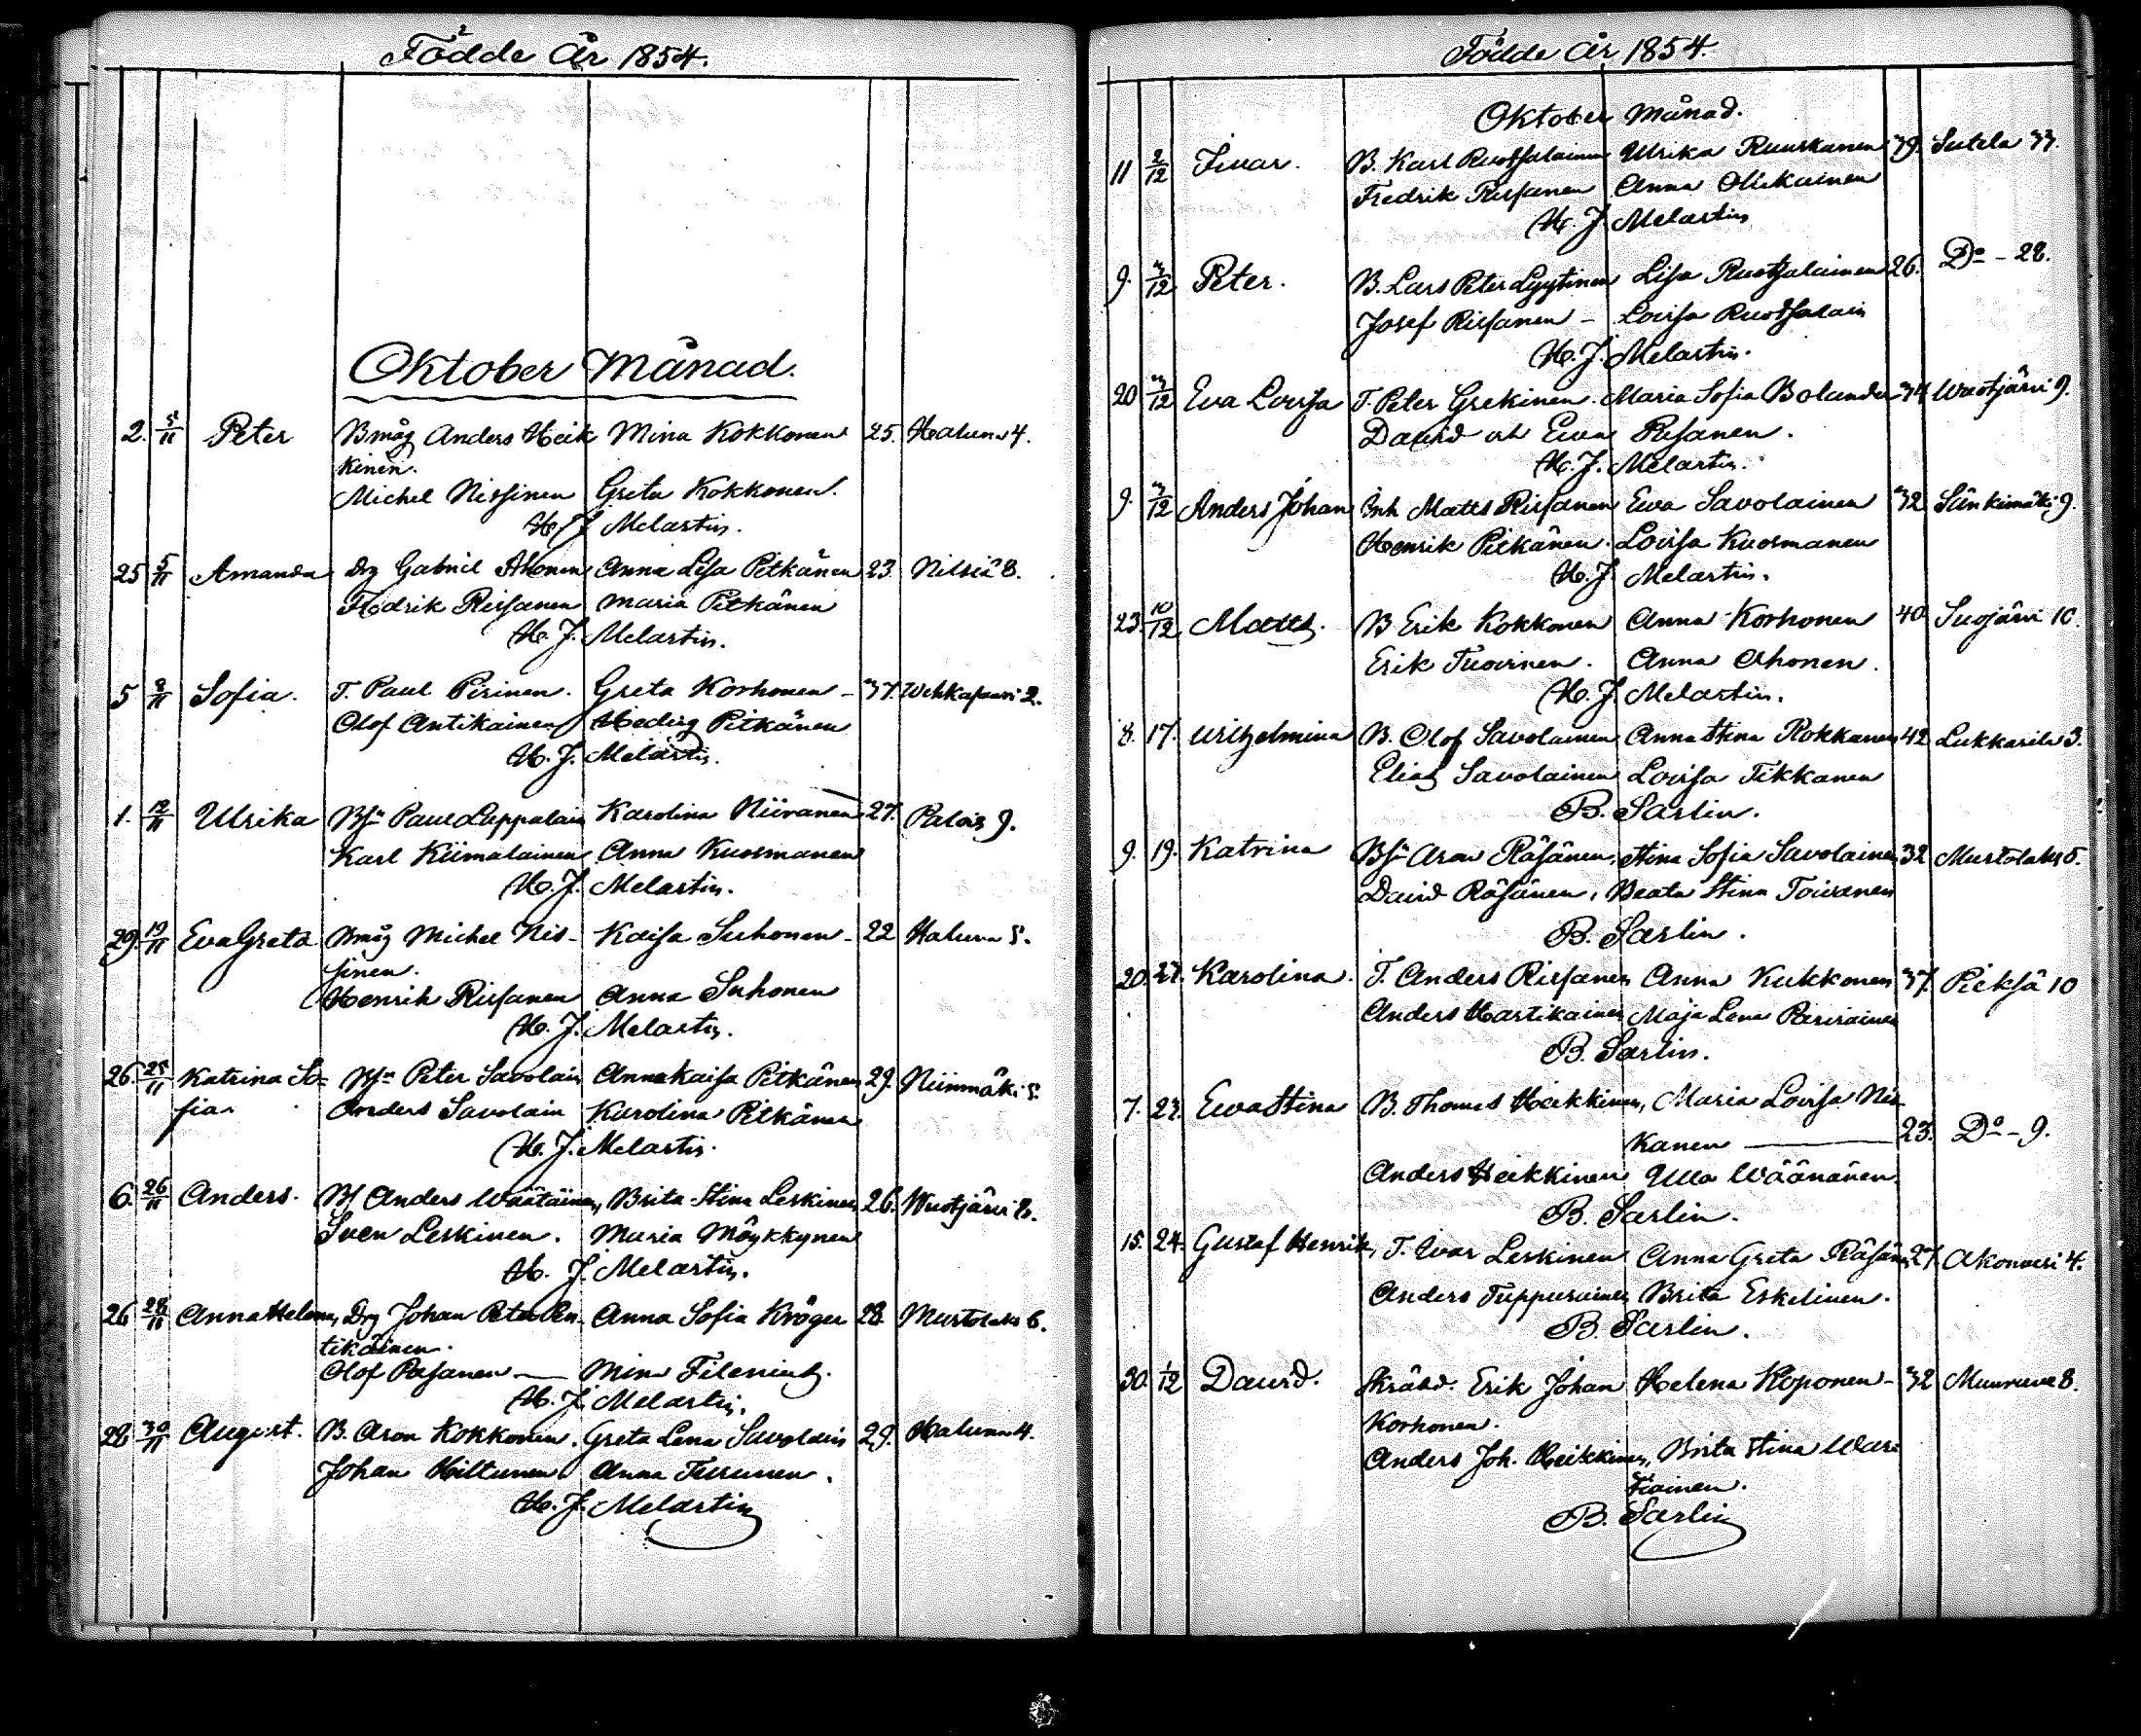 Födde År 1854.
Oktober Månad.
2. 5/11 Peter Bmåg Anders Heik Mina Kokkonen 25. Haluna 4.
kinen.
Michel Nissinen Greta Kokkonen.
H. J. Melartin.
25 5/11 Amanda Drg Gabriel Ahonen Anna Lisa Pitkänen 23. Nilsiä 8.
Fredrik Rissanen Maria Pitkänen
H. J. Melartin.
5 9/11 Sofia. T. Paul Pirinen. Greta Korhonen - 37. Wehkasuari 2.
Olof Antikainen Hedvig Pitkänen
H. J. Melartin.
1. 12/11 Ulrika Bsn Paul Lappalain Karolina Niiranen 27. Palois 9.
Karl Kiimalainen Anna Kuosmanen
H. J. Melartin.
29. 19/11 Eva Greta Bmåg Michel Nis- Kaisa Suhonen - 22 Haluna 5.
sinen.
Henrik Rissanen Anna Suhonen
H. J. Melartin.
26. 25/11 Katrina So- Bsn Peter Savolain Anna Kaisa Pitkänen 29. Niinimäki 5.
fia. Anders Savolain Karolina Pitkänen
H. J. Melartin.
6. 26/11 Anders. Bf Anders Wäätäinen, Brita Stina Leskinen 26. Wuotjärvi 8.
Sven Leskinen. Maria Möykkynen
H. J. Melartin.
26 28/11 Anna Helena, Drg Johan Peter An- Anna Sofia Kröger 28. Murtolaks 6.
tikainen.
Olof Pasanen — Mina
H. J. Melartin.
28 30/11 August. B. Aron Kokkonen. Greta Lena Savolain 29. Haluna 4.
Johan Hiltunen Anna Turunen.
H. J. Melartin
Födde År 1854.
Oktober Månad.
11 2/12 Ivar. B. Karl Ruotsalainen Ulrika Ruuskanen 39. Sutela 33.
Fredrik Rissanen Anna Olikainen
H. J. Melartin
9. 3/12 Peter. B. Lars Peter Lyytinen Lisa Ruotsalainen 26. Do - 28.
Josef Rissanen - Lovisa Ruotsalain
H. J. Melartin.
20 3/12 Eva Lovisa T. Peter Grekinen. Maria Sofia Bolander 34 Wuotjärvi 9.
David och Ewa Pasanen.
H. J. Melartin.
9. 3/12 Anders Johan Inh Matts Rissanen Ewa Savolainen 32 Sänkimäki 9.
Henrik Pitkänen. Lovisa Kuosmanen
H. J. Melartin.
23. 10/12 Matts. B Erik Kokkonen Anna Korhonen 40 Suojärvi 10.
Erik Tuovinen. Anna Ahonen.
H. J. Melartin.
8. 17. Wilhelmina B. Olof Savolainen Anna Stina Kokkanen 42 Lukkarila 3.
Elias Savolainen Lovisa Tikkanen
B. Sarlin.
9. 19. Katrina Bsn Aron Räsänen, Stina Sofia Savolainen 32 Murtolaks 5.
David Räsänen, Beata Stina Toivanen
B. Sarlin.
20. 27. Karolina. T. Anders Rissanen Anna Kukkonen 37. Pieksä 10
Anders Hartikainen Maja Lena Parviainen
B. Sarlin.
7. 23. Ewa Stina B. Thomas Heikkinen, Maria Lovisa Nis
kanen — 23. Do - 9.
Anders Heikkinen Ulla Wäänänen.
B. Sarlin.
15. 24. Gustaf Henrik, T. Ivar Leskinen Anna Greta Räsän 27. Akonvesi 4.
Anders Tuppurainen Brita Eskelinen.
B. Sarlin.
30. 1/12 David. Skrädd. Erik Johan Helena Koponen - 32 Muuruvesi 8.
Korhonen.
Anders Joh. Heikkinen, Brita Stina War-
tiainen.
B. Sarlin